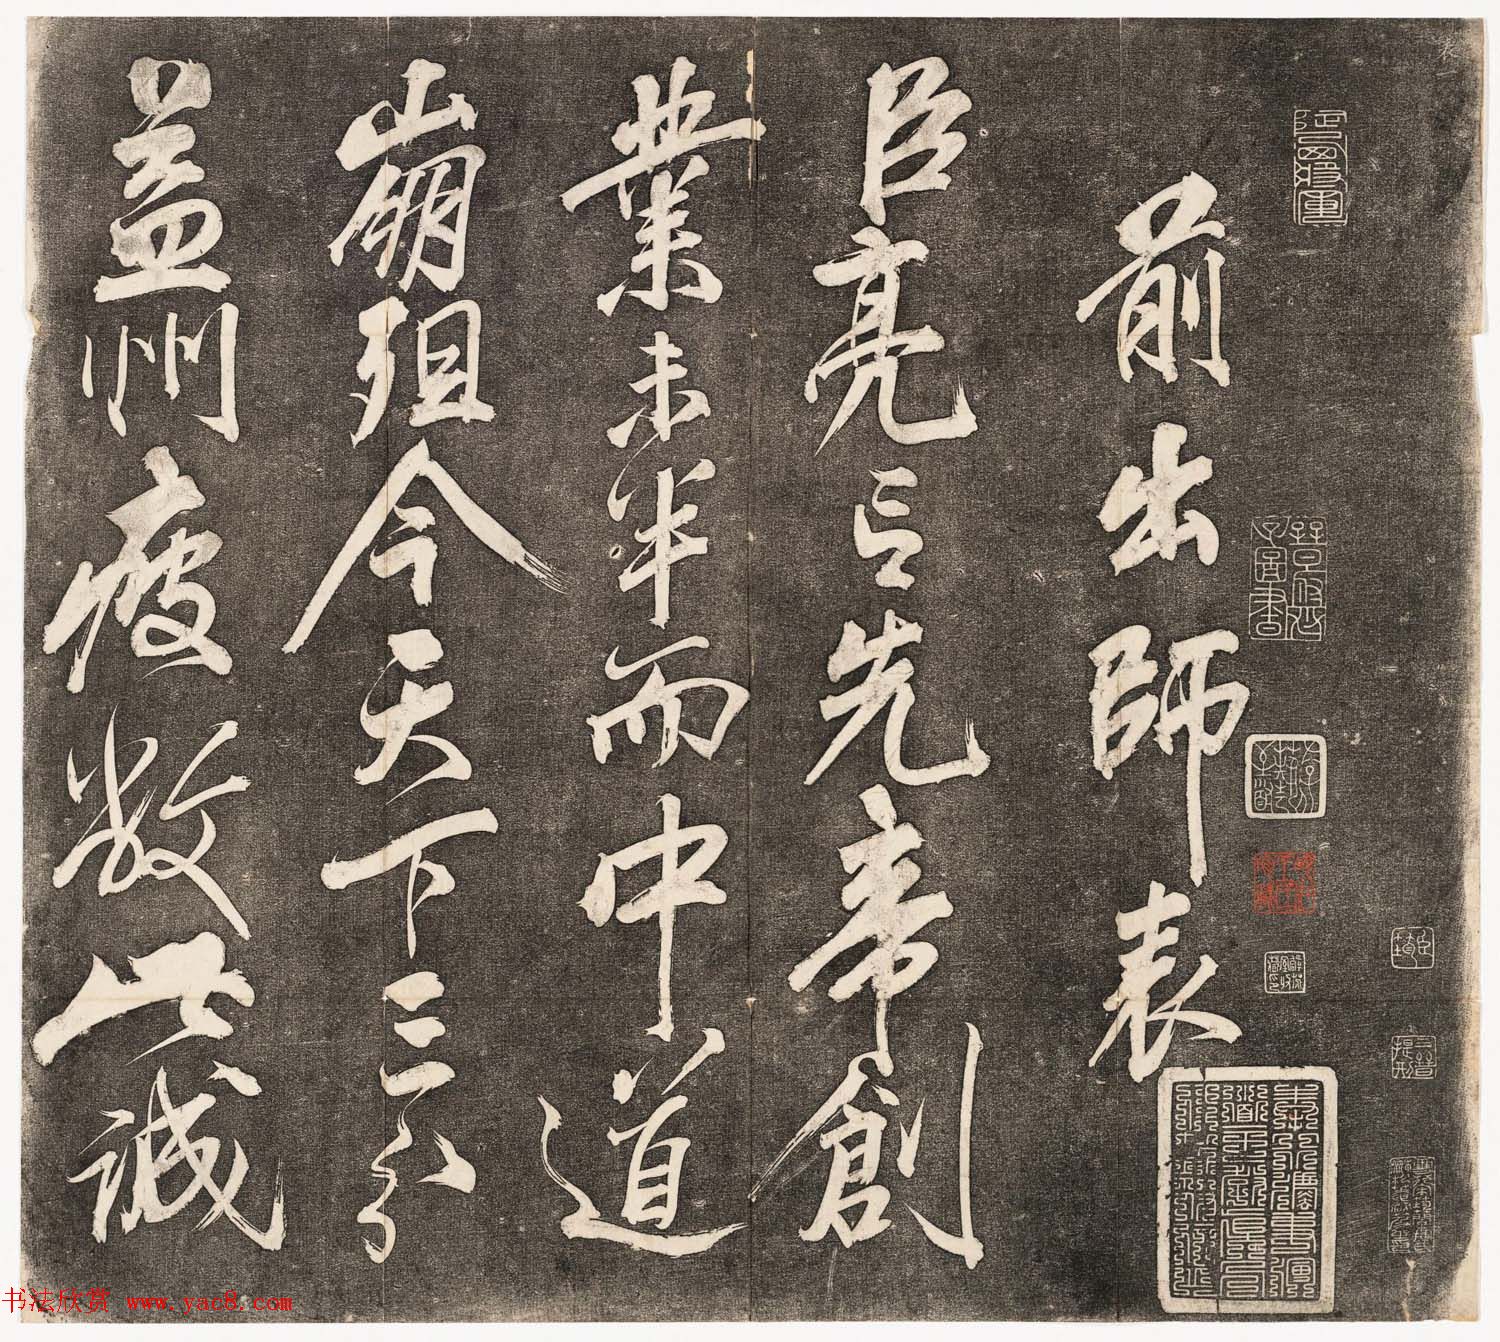 前出師表
臣亮言先帝創
業未半而中道
崩殂今天下三分
益州疲敝此誠
书法欣赏 www.yac8.com